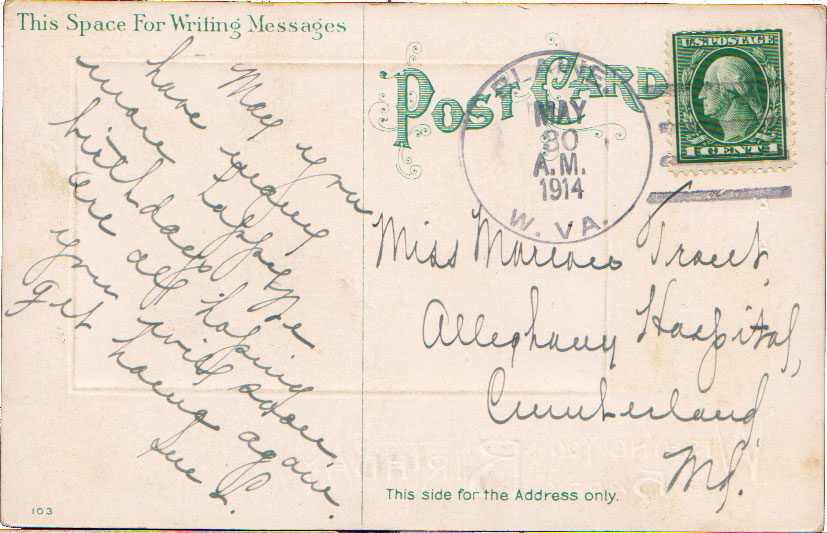 This Space For Writing Messages
May you
have many
more happy
birthdays We
are all hoping
you will soon
get home again.
Sue S.
POST CARD
U.S. POSTAGE
1 CENT 1
MAY
30
A.M.
1914
W. VA.
Miss Trout,
Alleghany Hospital,
Cumberland
Md.
This side for the Address only.
103